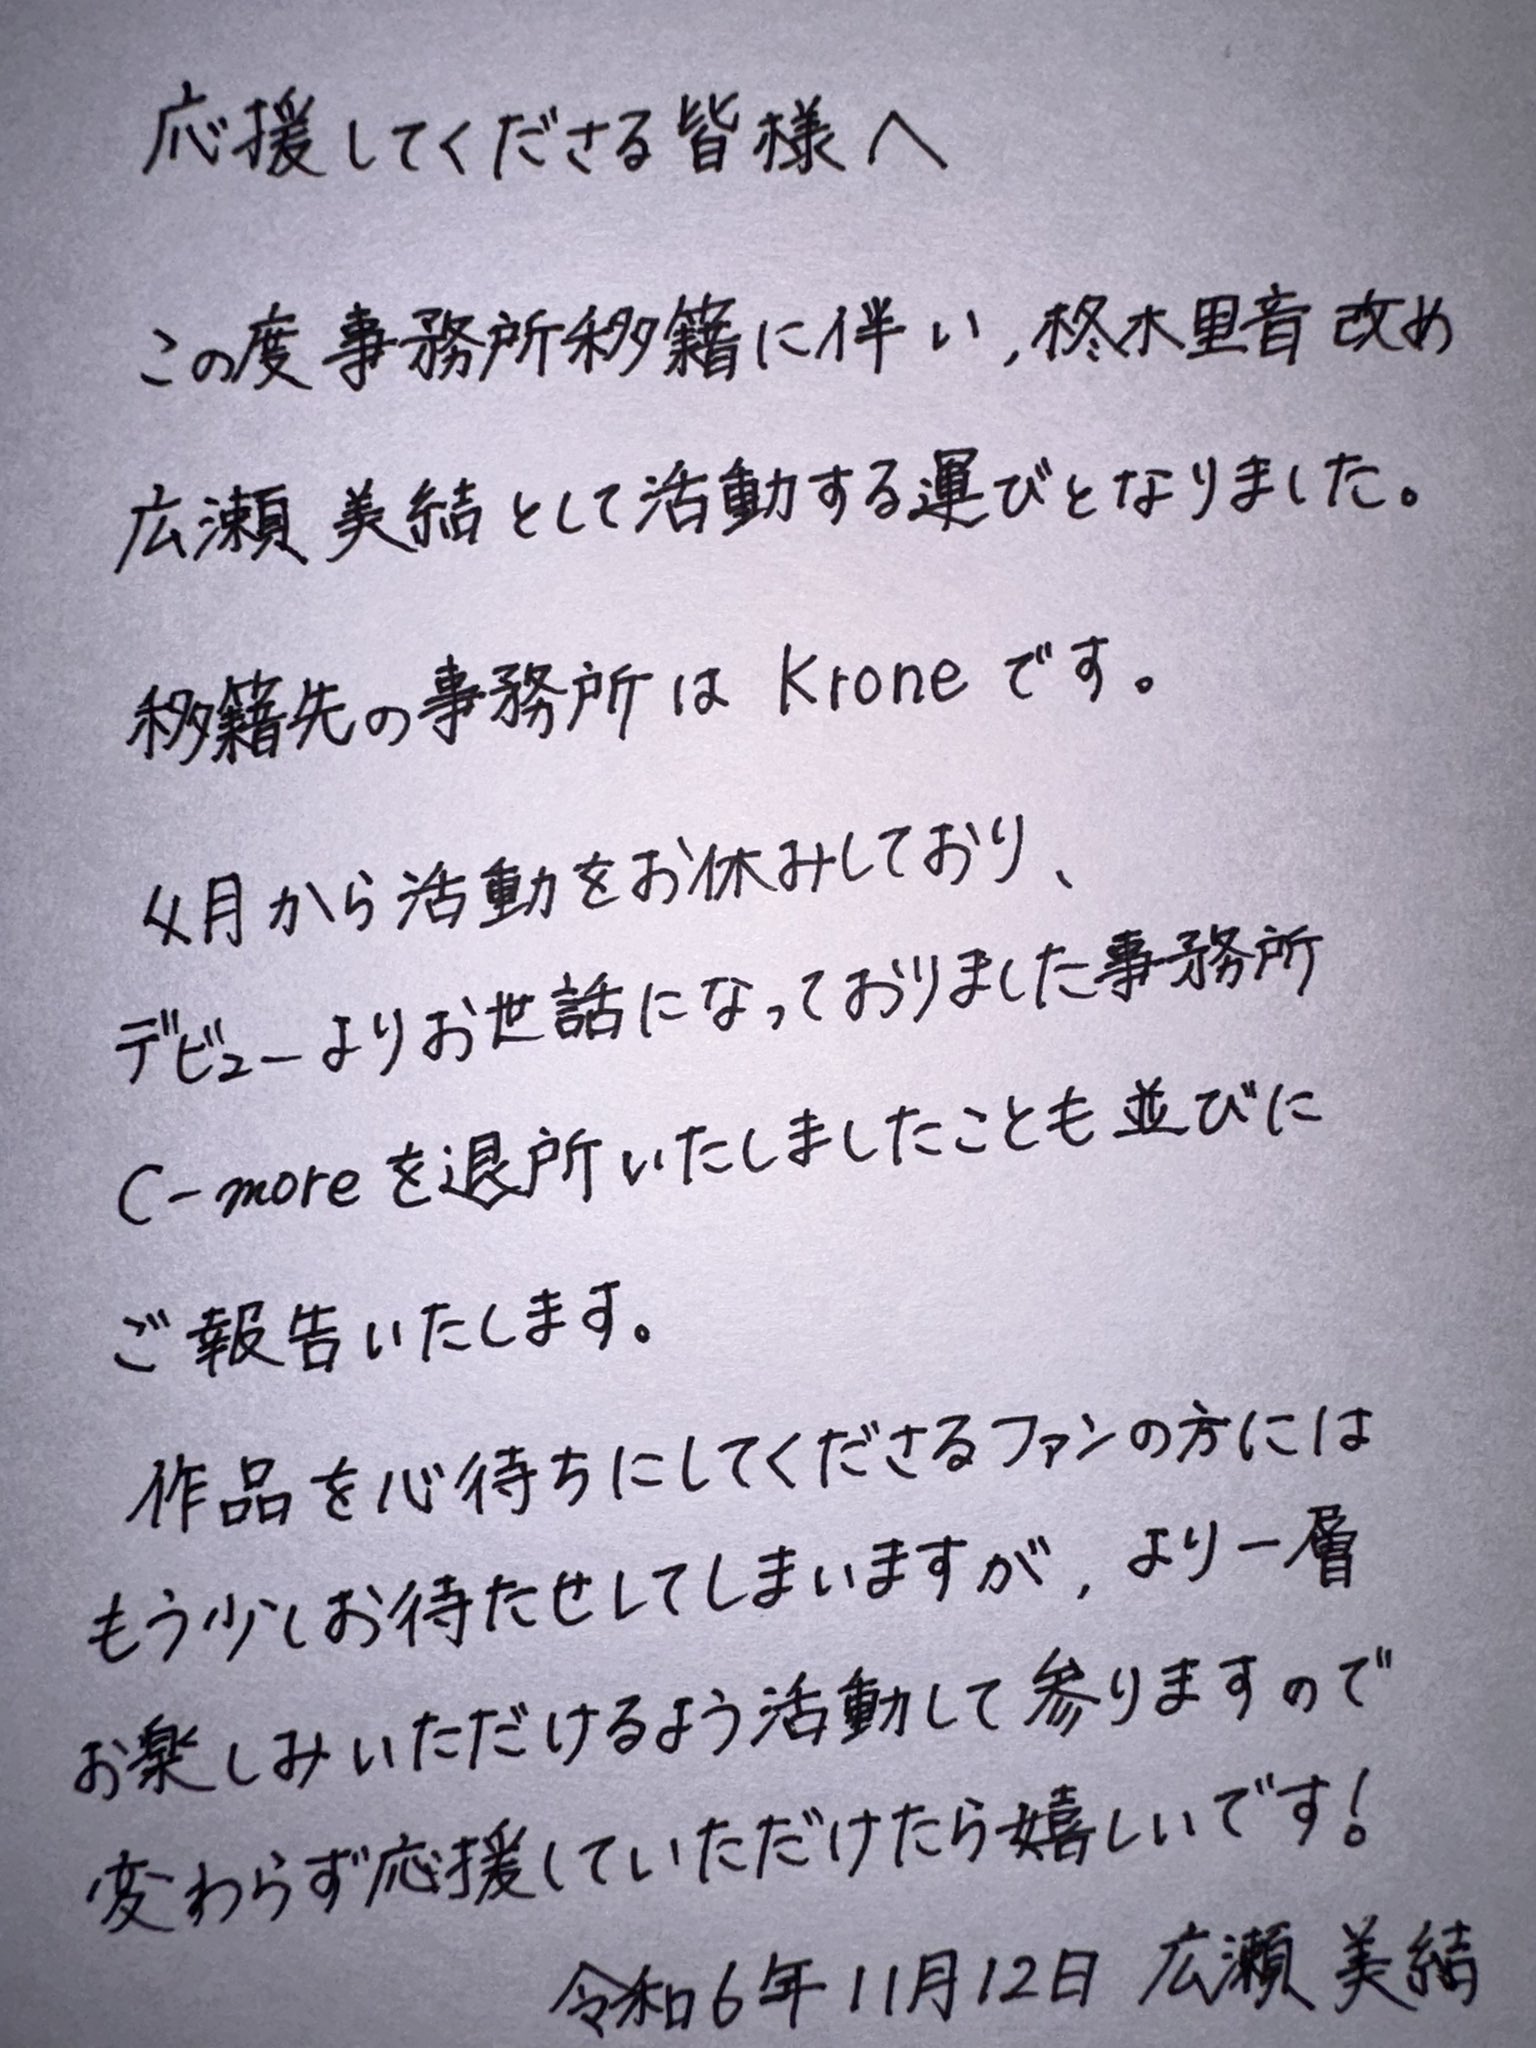 応援してくださる皆様へ
この度事務所移籍に伴い,柊木里音改め
広瀬美結として活動する運びとなりました。
移籍先の事務所はKroneです。
4月から活動をお休みしており、
デビューよりお世話になっておりました事務所
C-moreを退所いたしましたことも並びに
ご報告いたします。
作品を心待ちにしてくださるファンの方には
もう少しお待たせしてしまいますが,より一層
お楽しみいただけるよう活動して参りますので
変わらず応援していただけたら嬉しいです!
令和6年11月12日 広瀬美結